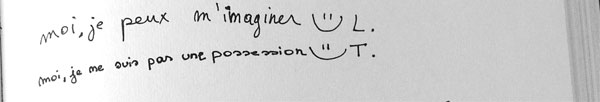 moi, je peux m'imaginer :) L.
moi, je ne suis pas une possession :) T.